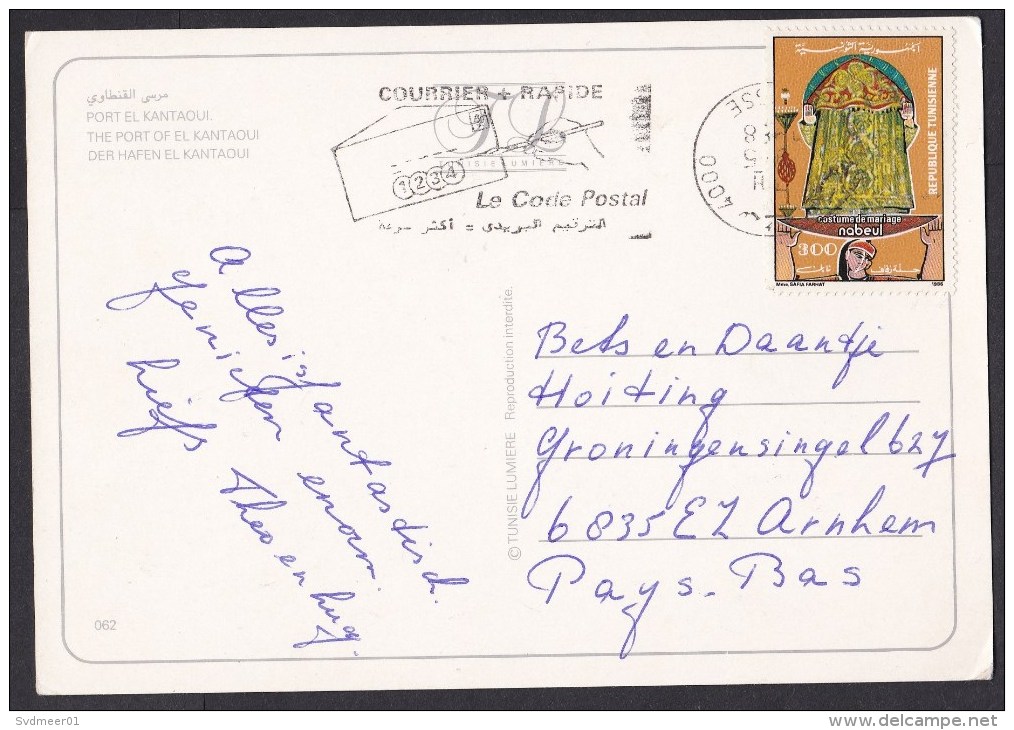 مرسى القنطاوي
PORT EL KANTAOUI.
THE PORT OF EL KANTAOUI
DER HAFEN EL KANTAOUI
COURRIER + RAPIDE
TUNISIE LUMIERE
1234
Le Code Postal
الترقيم البريدي = أكثر سرعة
4000
الجمهورية التونسية
REPUBLIQUE TUNISIENNE
costume de mariage
nabeul
300
Mme. SAFIA FARHAT
1986
Alles is fantastisch.
genieten enorm.
liefs Theo en
Bets en Daantje
Hoiting
Groningensingel 627
6835 EZ Arnhem
Pays-Bas
© TUNISIE LUMIERE Reproduction interdite.
062
Svdmeer01
www.delcampe.net